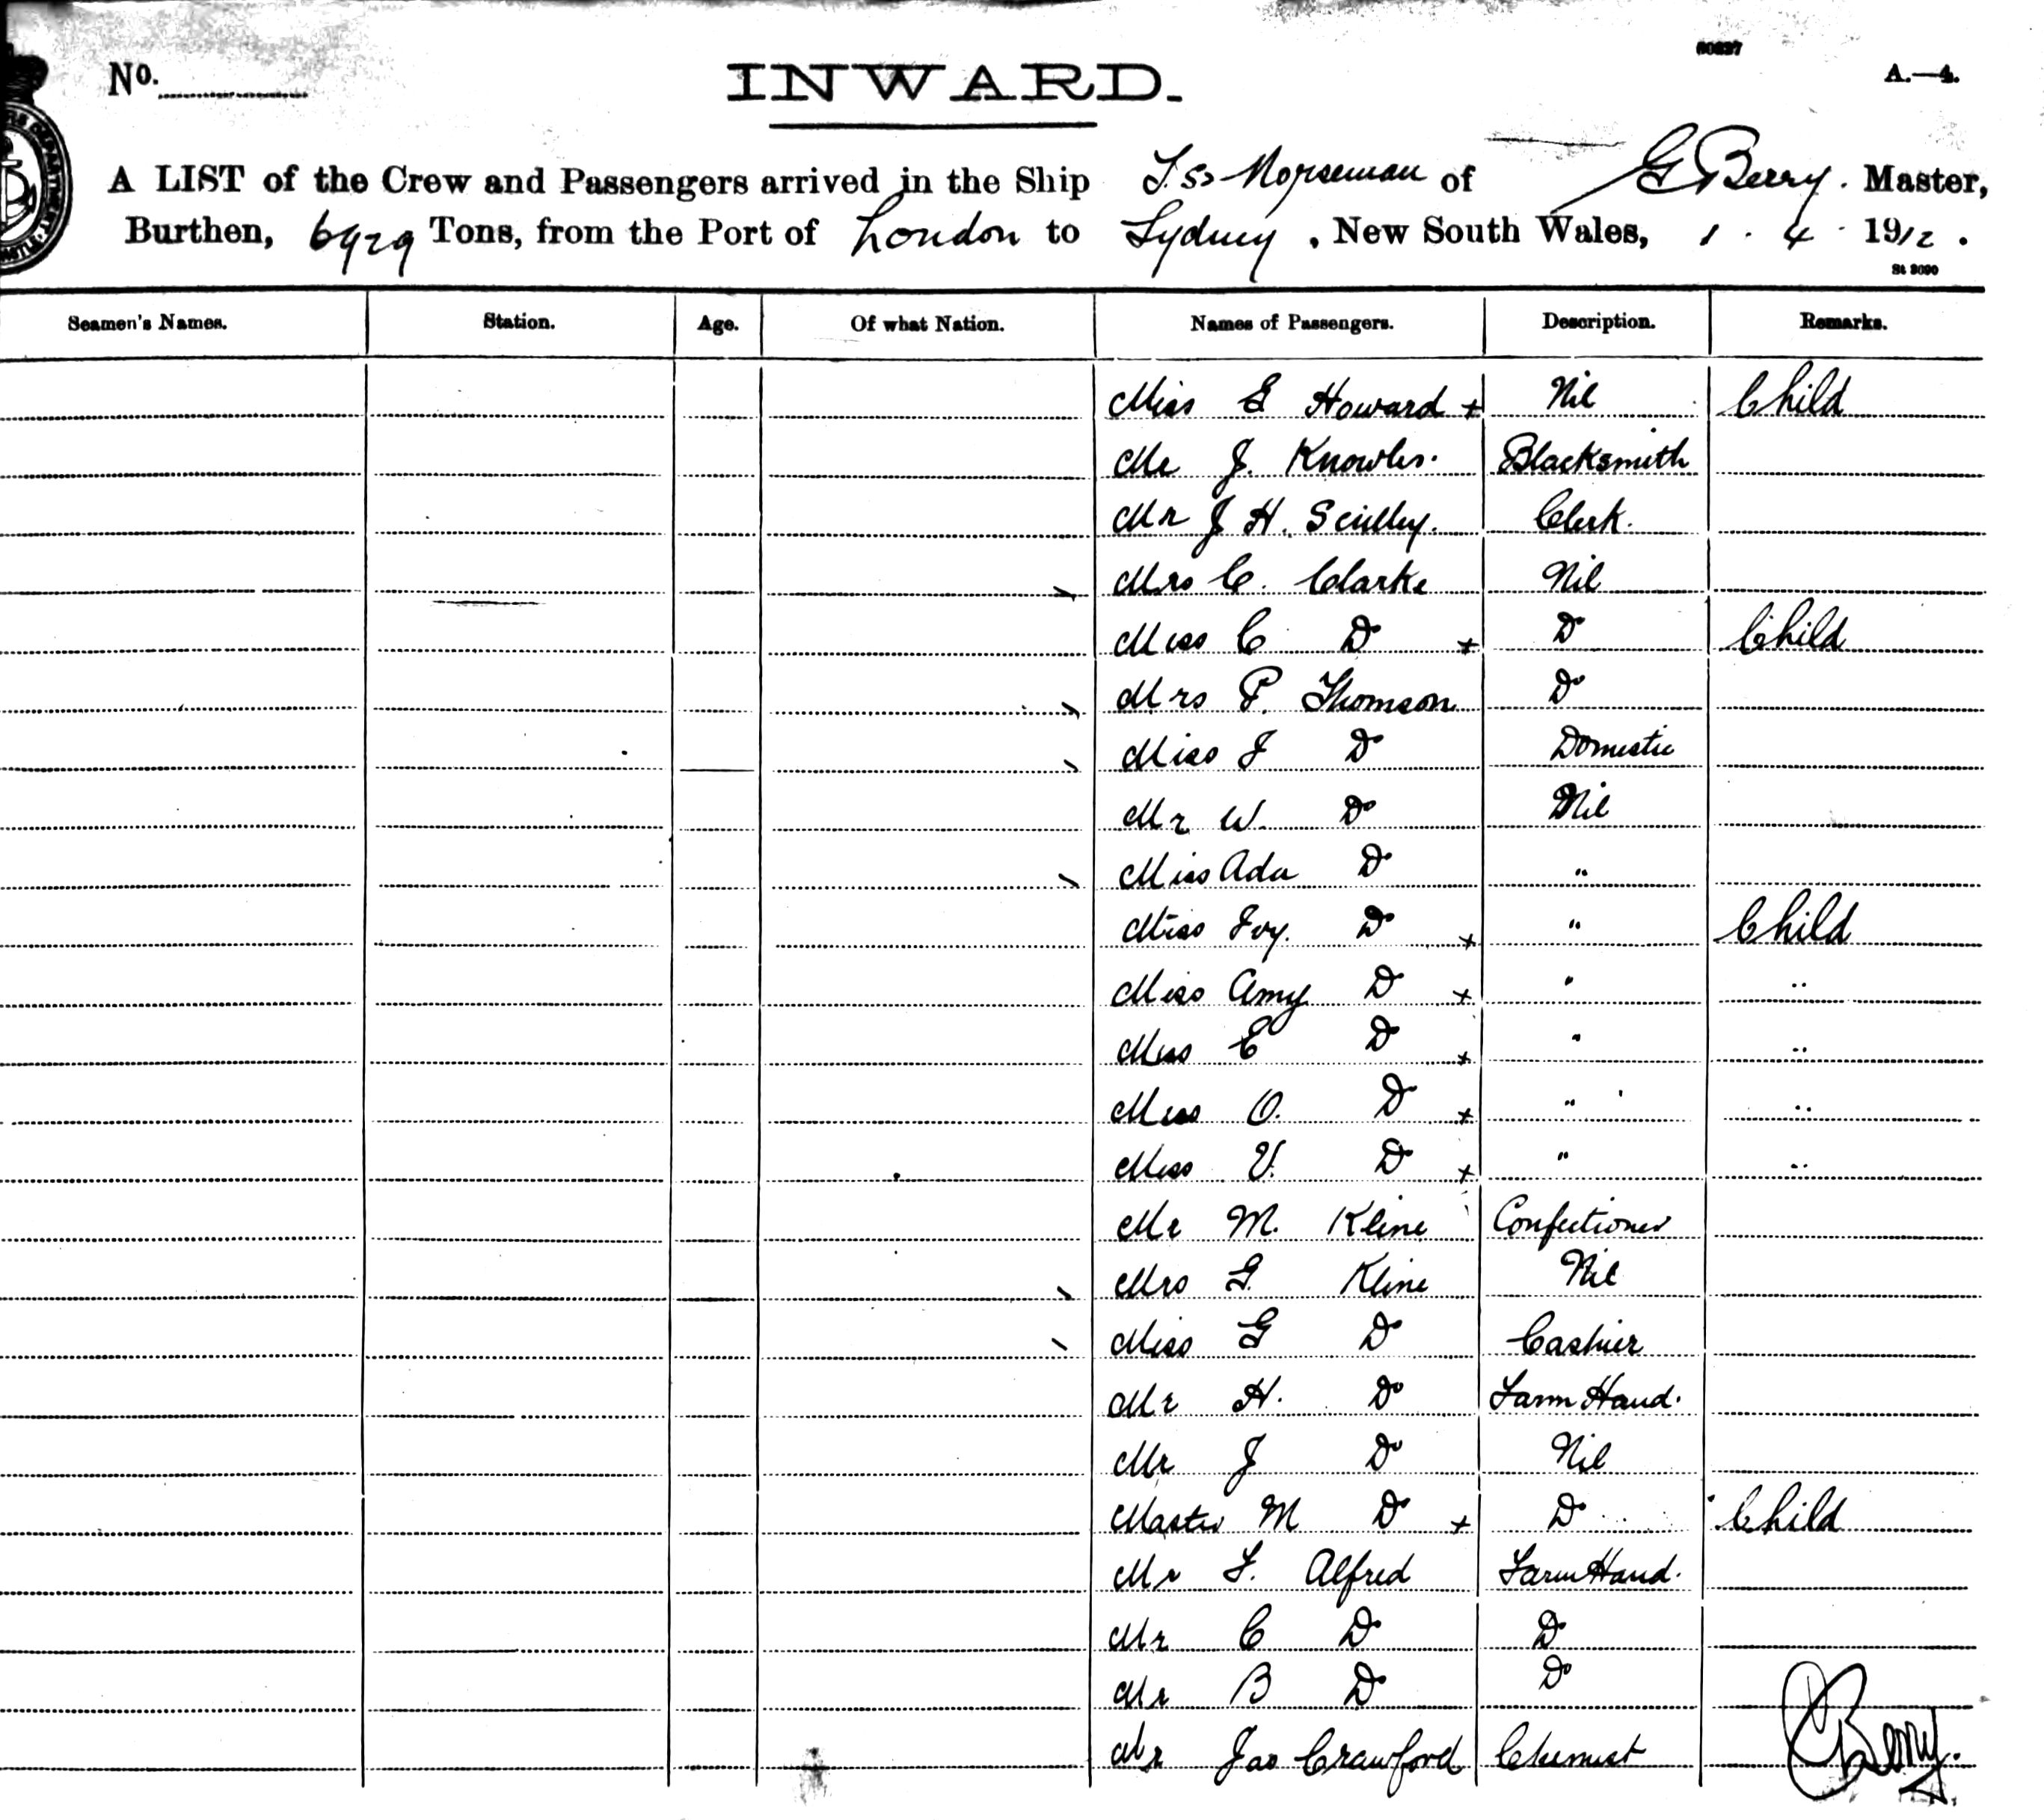 60327
No. INWARD. A.—4.
A LIST of the Crew and Passengers arrived in the Ship T.SS Norseman of G Berry. Master,
Burthen, 6929 Tons, from the Port of London to Sydney, New South Wales, 1. 4. 1912.
St 3090
Seamen's Names. Station. Age. Of what Nation. Names of Passengers. Description. Remarks.
Miss E Howard + Nil Child
Mr J. Knowles. Blacksmith
Mr J H. Sculley. Clerk.
Mrs C. Clarke Nil
Miss C Do + Do Child
Mrs P. Thomson Do
Miss J Do Domestic
Mr W. Do Nil
Miss Ada Do "
Miss Ivy. Do + " Child
Miss Amy Do + " "
Miss E Do + " "
Miss O. Do + " "
Miss V. Do + " "
Mr M. Kline Confectioner
Mrs G. Kline Nil
Miss G Do Cashier
Mr H. Do Farm Hand.
Mr J Do Nil
Master M Do + Do Child
Mr F. Alfred Farm Hand.
Mr C Do Do
Mr B Do Do
Mr Jas Crawford Chemist
Berry.